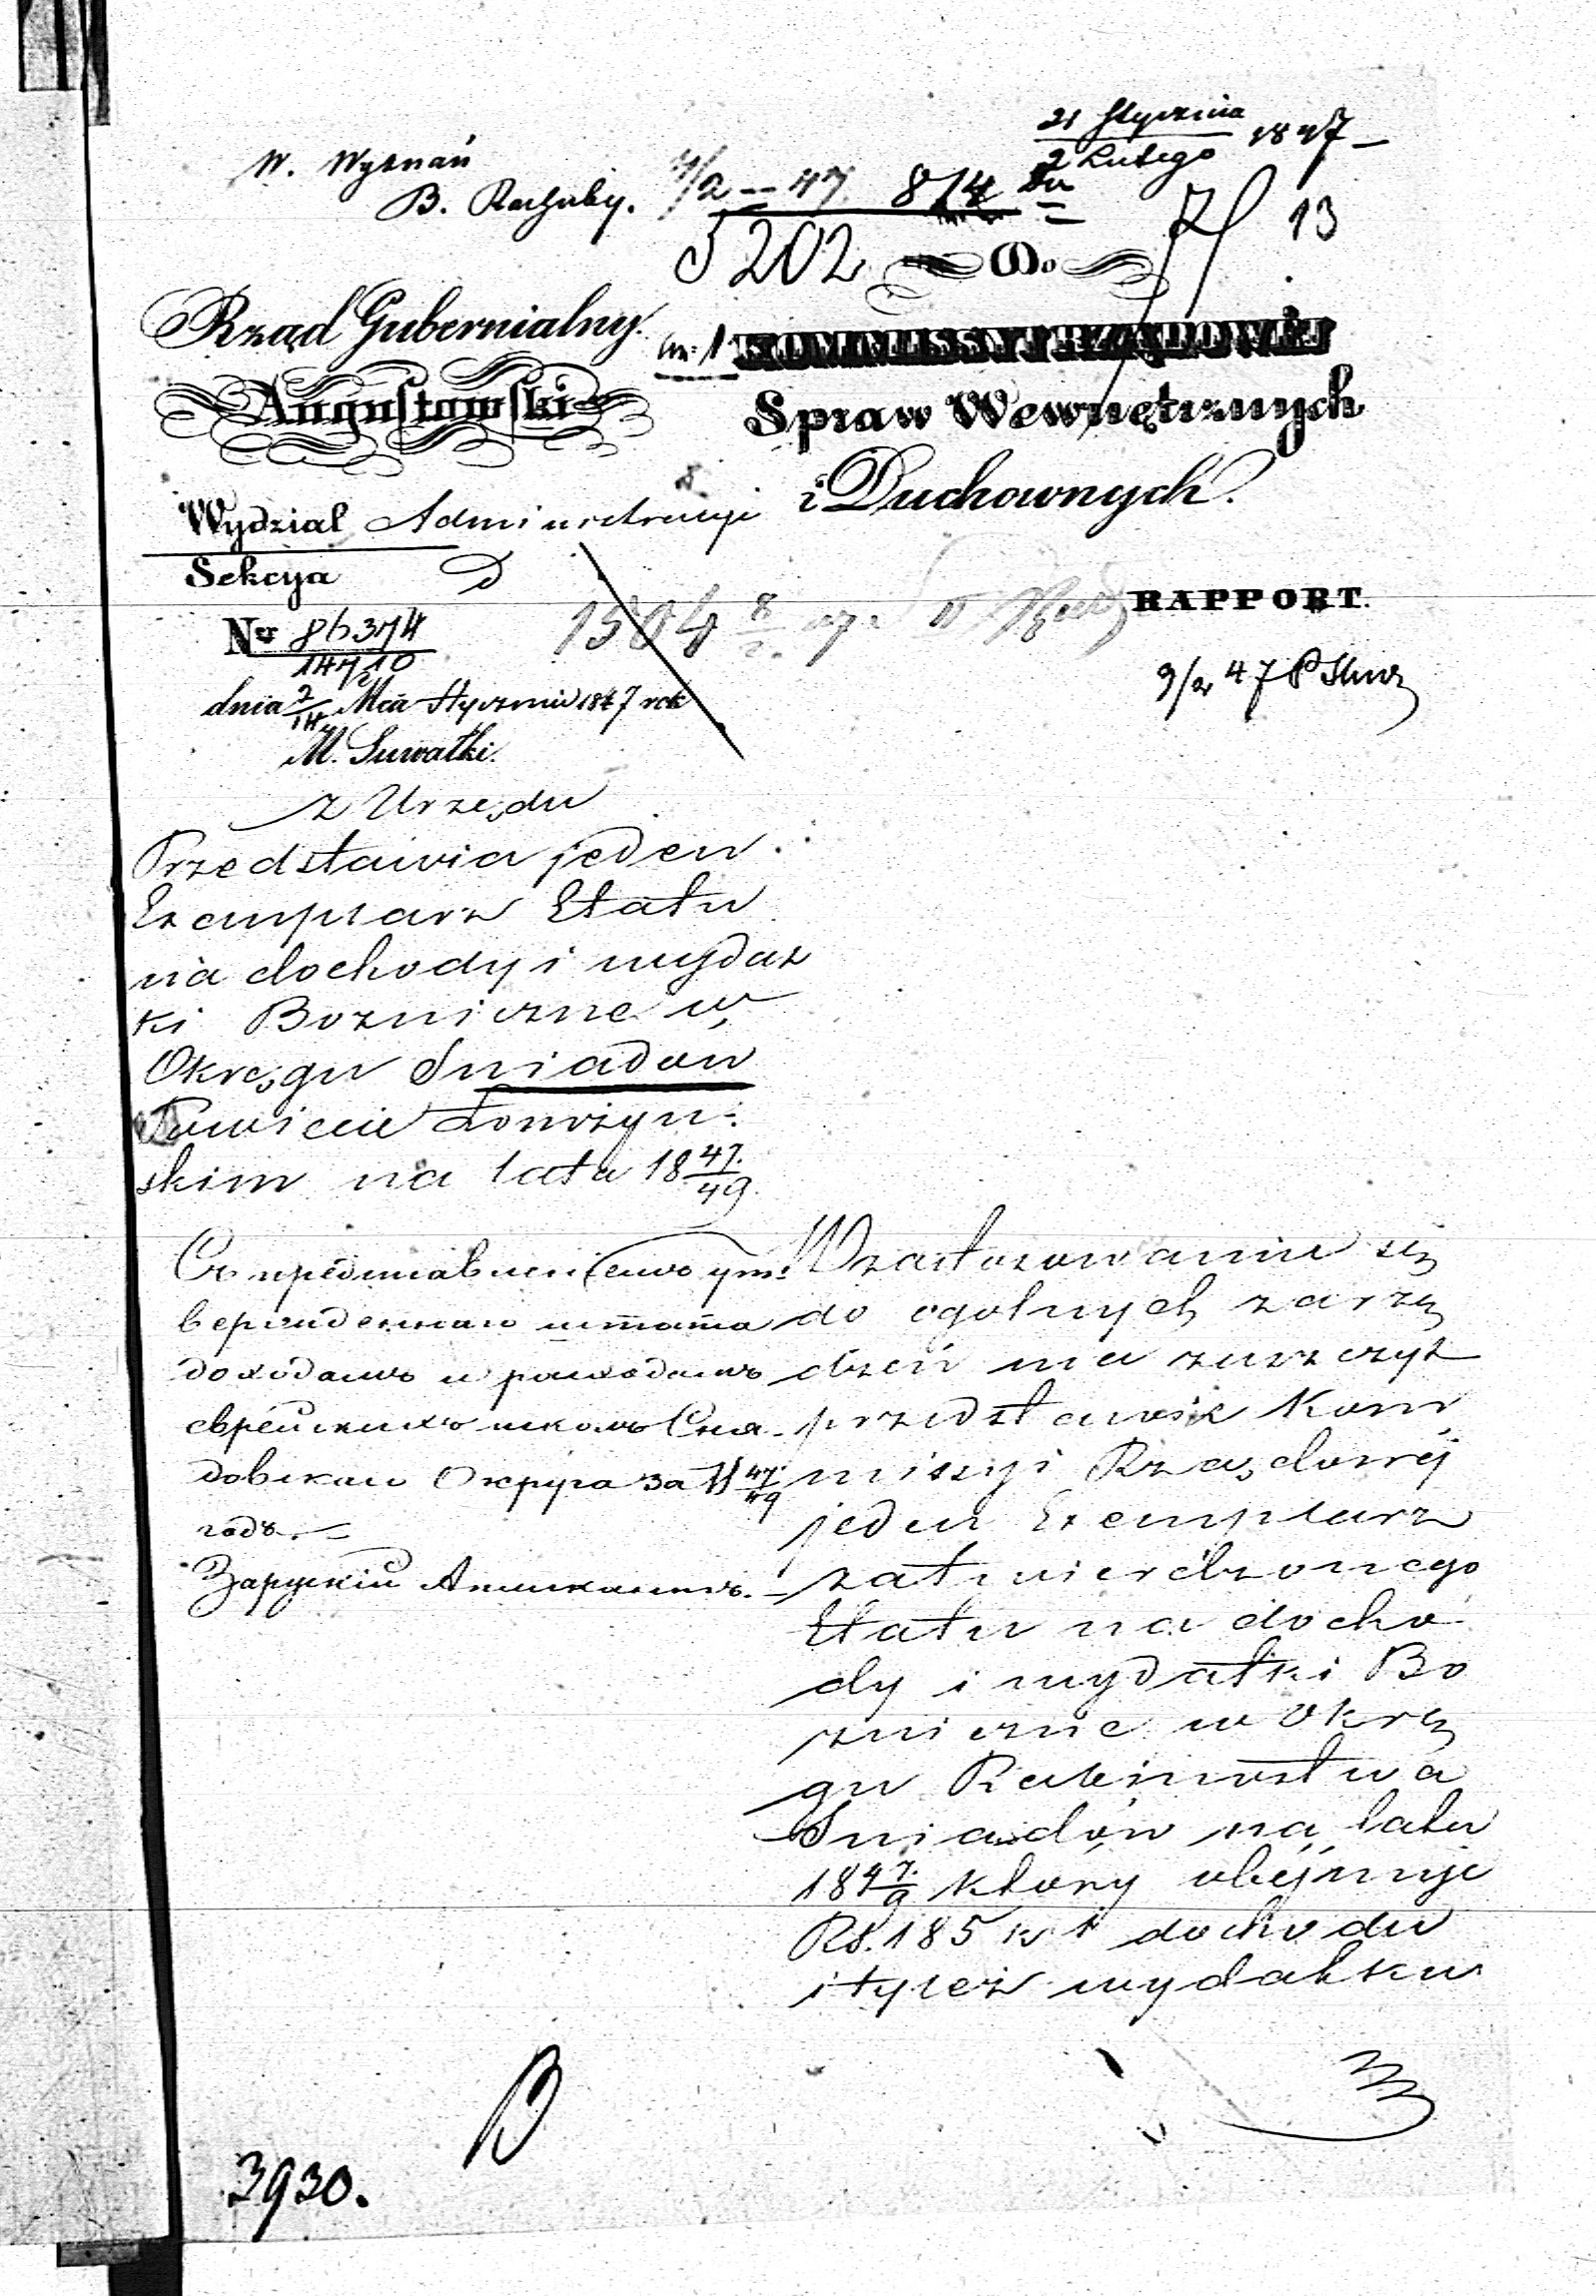 21 Stycznia
2 Lutego 1847
W. Wyznań
B. Rachuby.
4/2 – 47 814
5202
13
Do
Rząd Gubernialny
Augustowski
KOMMISSYI RZĄDOWÉJ
Spraw Wewnętrznych
i Duchownych.
Wydział Administracyi
Sekcya D
1504
RAPPORT.
Nr 86374
14710
9/2 47
dnia 2/14 Mca Stycznia 1847 rok
M. Suwałki.
z Urzędu
Przedstawia jeden
Exemplarz Etatu
na dochody i wydat
ki Bożniczne w
Okręgu Sniadow
Powiecie Łomżyń-
skim na lata 18 47/49
Съ представленіемъ ут-
вержденнаго штата
доходамъ и расходамъ
еврейскихъ школъ Сня-
довскаго Округа за 18 47/49
годъ.
Заруский
W zastosowaniu się
do ogolnych zarzą
dzeń ma zaszczyt
przedstawić Kom
missyi Rządowéj
jeden Exemplarz
zatwierdzonego
Etatu na docho
dy i wydatki Bo
zniczne w Okrę
gu Rabinostwa
Sniadów na lata
184 7/9 ktory obéjmuje
Rs. 185 k 1 dochodu
i tyleż wydatku
3930.